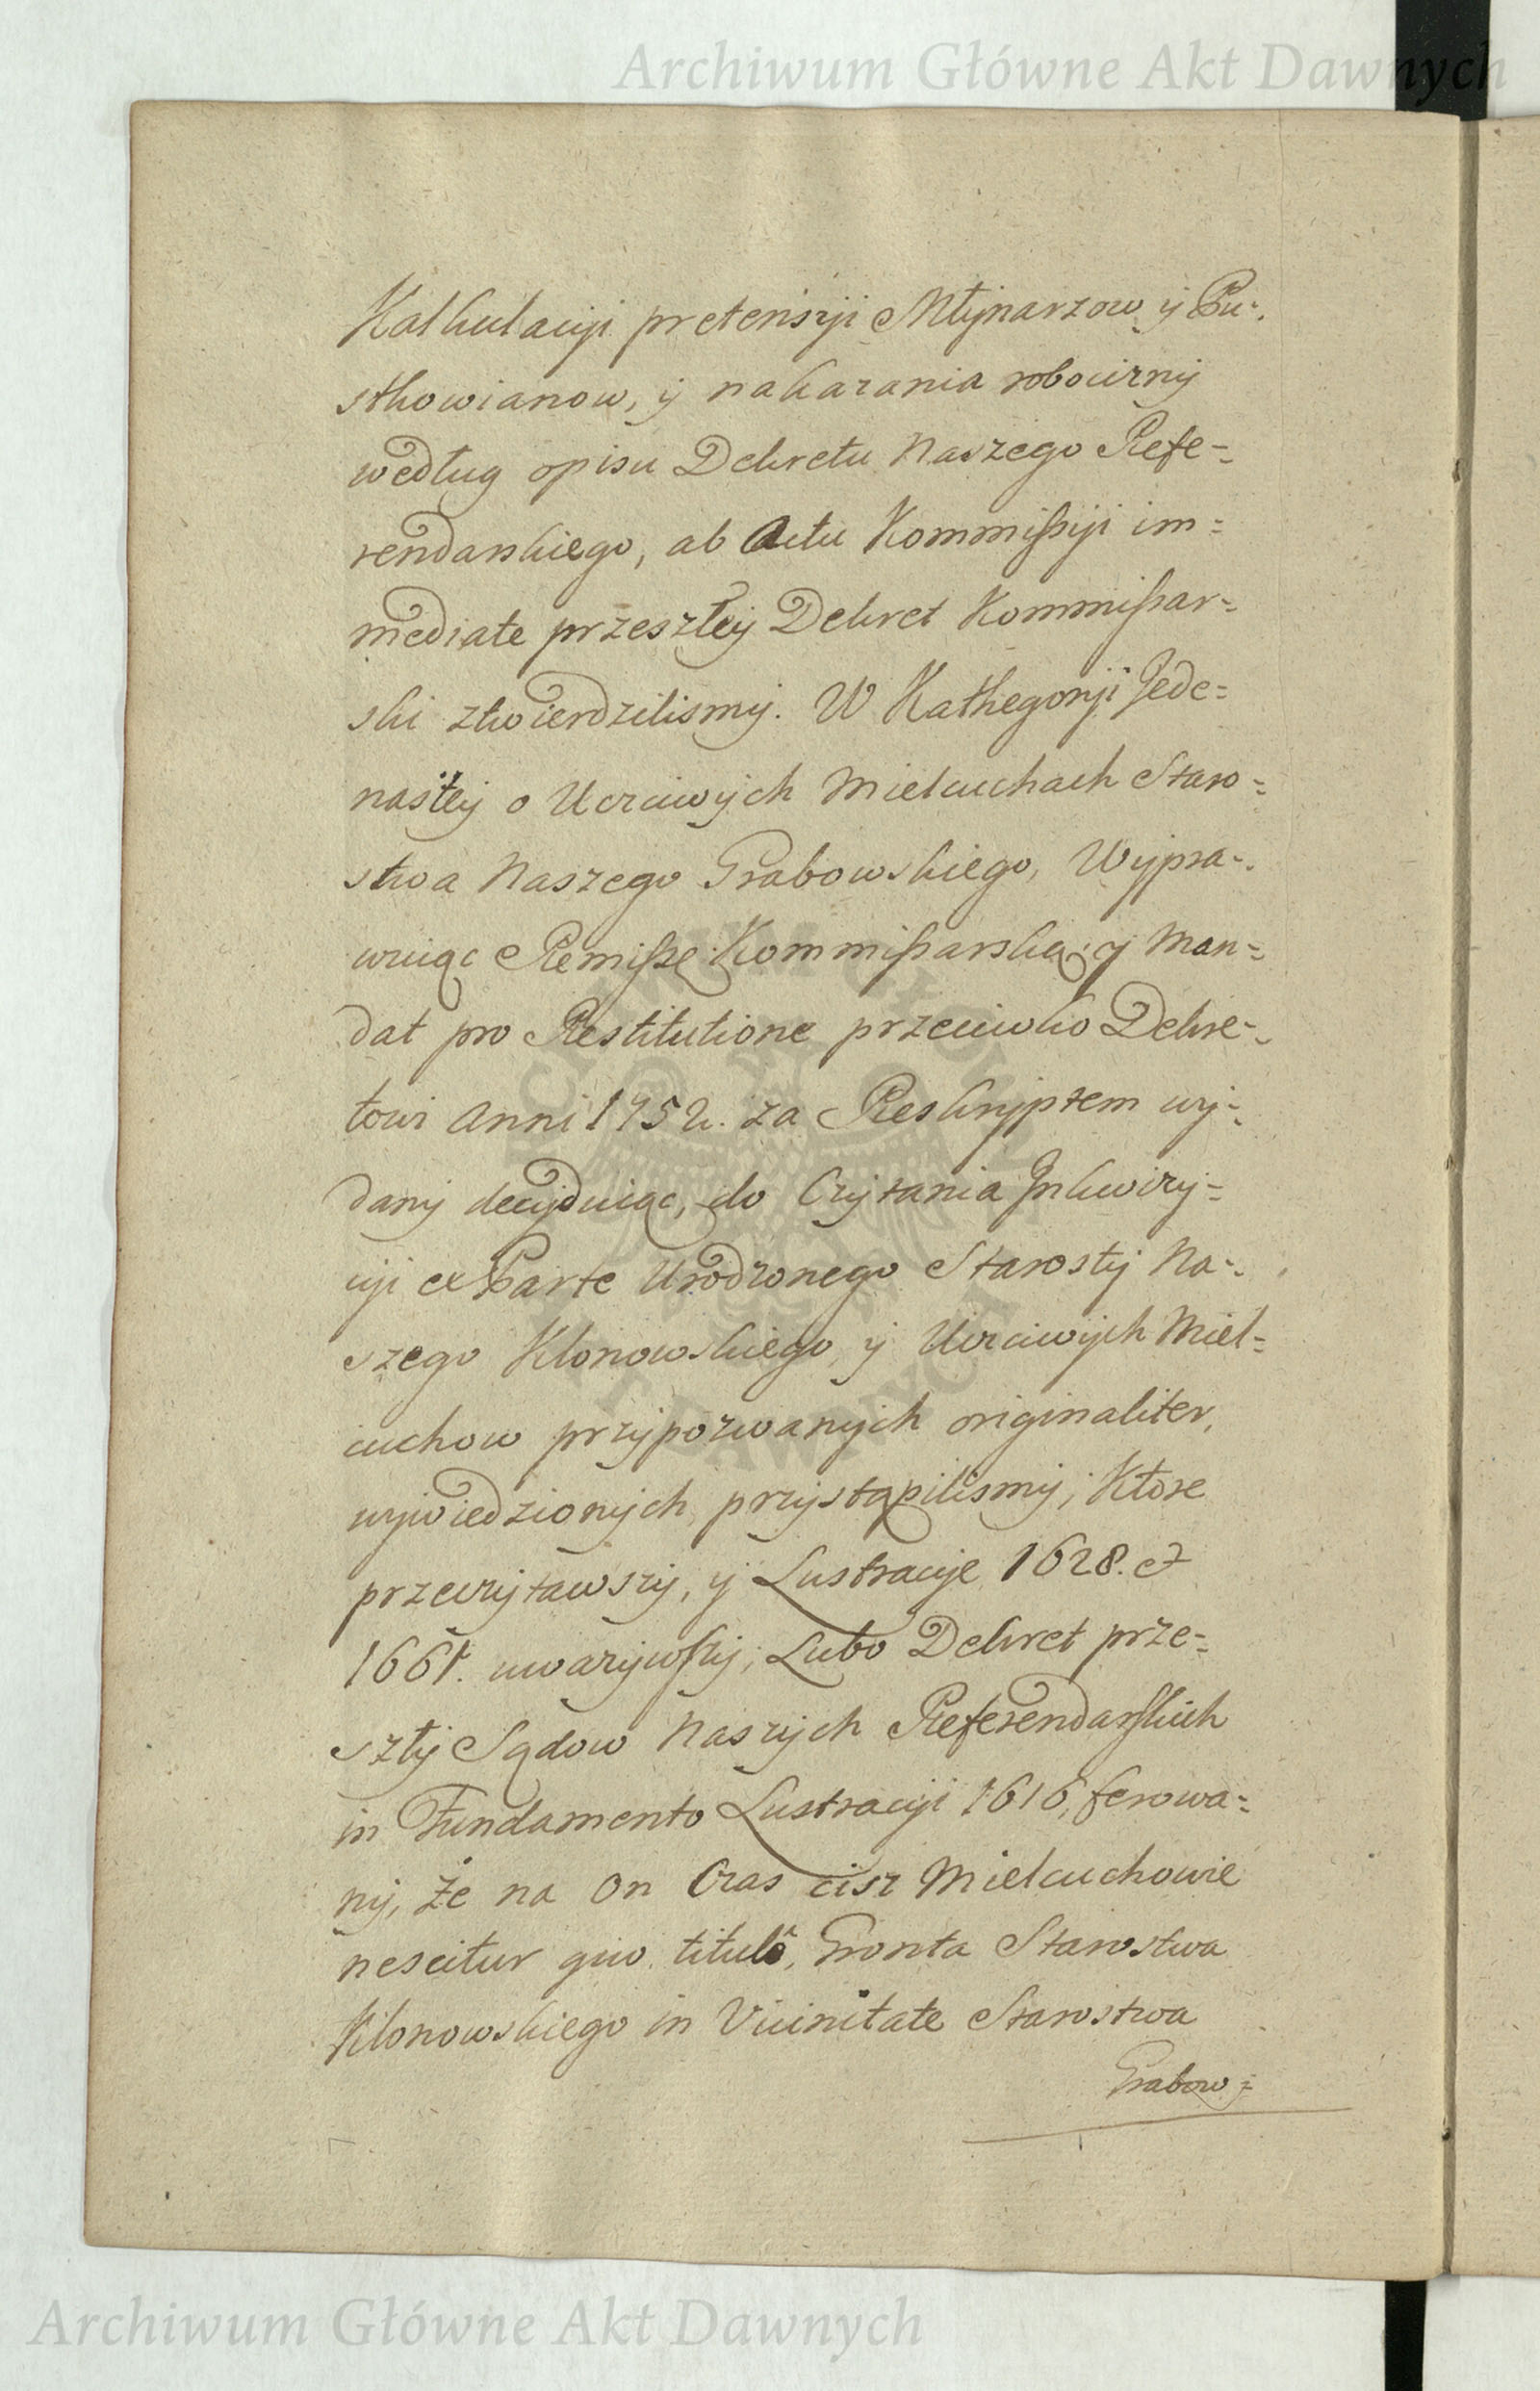 Archiwum Główne Akt Dawnych
Kalkulacyi pretensyi Młynarzow y Pu-
stkowianow, y nakazania robocizny
według opisu Dekretu Naszego Refe-
rendarskiego, ab Actu Kommißyi im=
mediate przeszłey Dekret Kommißar=
ski ztwierdzilismy. W Kathegoryi Jede=
nastey o Uczciwych Mielcuchach Staro=
stwa Naszego Grabowskiego, Wypra-
wuiąc Remißę Kommißarską, y Man=
dat pro Restitutione przeciwko Dekre-
towi Anni 1752. za Reskryptem wy-
dany decyduiąc, do Czytania Inkwizy=
cyi ex Parte Urodzonego Starosty Na-
szego Klonowskiego, y Uczciwych Miel=
cuchow przypozwanych originaliter,
wywiedzionych, przystąpilismy, Ktore
przeczytawszy, y Lustracye 1628. et
1661. uważywszy; Lubo Dekret prze=
szły Sądow Naszych Referendarskich
in Fundamento Lustracyi 1616, ferowa=
ny, że na on Czas cisz Mielcuchowie
nescitur quo titulô, Gronta Starostwa
Klonowskiego in Vicinitate Starostwa
Grabow=
Archiwum Główne Akt Dawnych